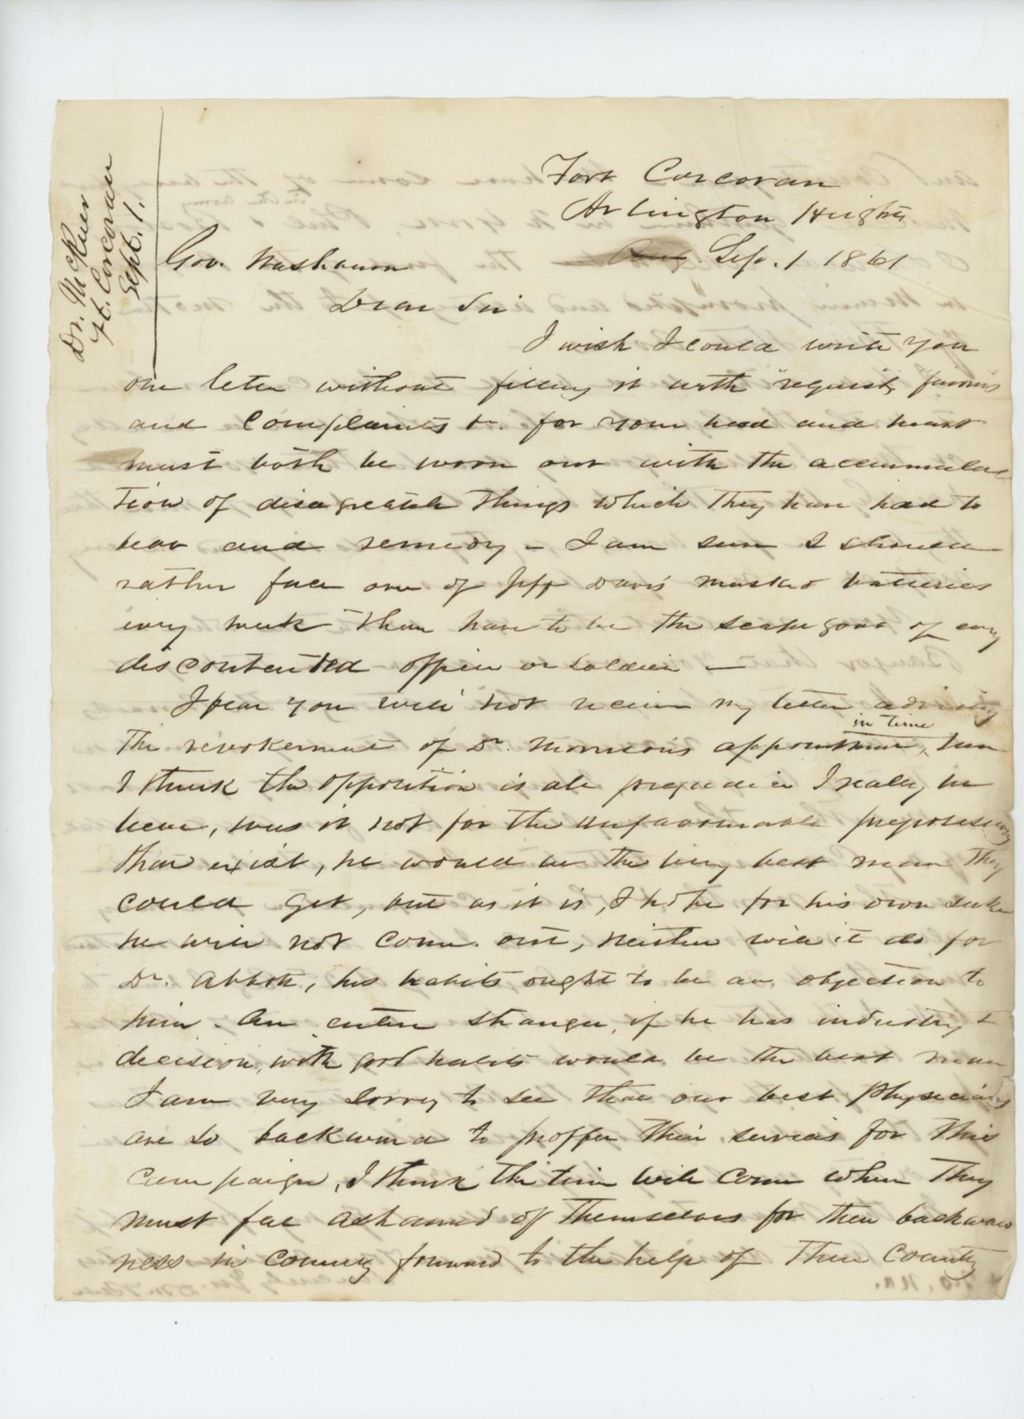 Dr. McRuer
Ft. Corcoran
Sept. 1.
Fort Corcoran
Arlington Heights
Aug Sep. 1 1861
Gov. Washburn
Dear Sir
I wish I could write you
one letter without filling it with "requests, favors
and Complaints &c. for your head and heart
must both be worn out with the accumula
tion of disagreeable things which they have had to
hear and remedy - I am sure I should
rather face one of Jeff Davis' masked batteries
every week than have to be the scape goat of every
discontented officer or soldier -
I fear you will not receive my letter advising
in time
the revokement of Dr. appointment,
I think the opposition is all prejudice I really be
lieve, was it not for the unfavourable prepossessions
that exist, he would be the very best man they
could get, but as it is, I hope for his own sake
he will not come out, neither will it do for
Dr. Abbott, his habits ought to be an objection to
him. An entire stranger, if he has industry &
decision, with good habits would be the best man
I am very sorry to see that our best Physicians
are so backward to proffer their services for this
Campaign, I think the time will come when they
must feel ashamed of themselves for their backward
ness in coming forward to the help of their Country